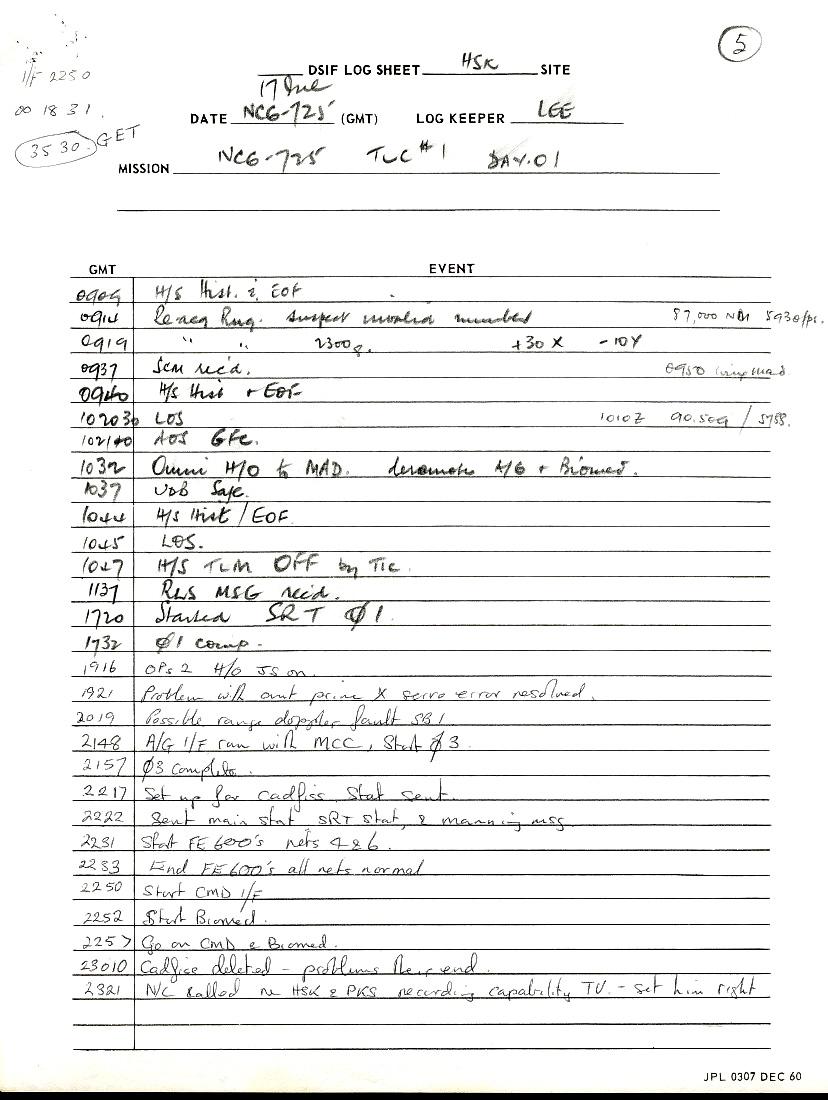 5
I/F 2250
00 18 31.
35 30. GET
DSIF LOG SHEET HSK SITE
17 June
DATE NCG-725 (GMT) LOG KEEPER LEE
MISSION NCG-725 TLC #1 DAY.01
GMT EVENT
0909 H/S Hist. & EOF
0914 Re acq Rng. suspect invalid number 87,000 NM 5930/ps.
0919 " " 2300 +30 X -10Y
0937 Scm rec'd. 0950
0940 H/S Hist + EOF
102030 LOS 1010Z 90.509 / 5755.
102140 AOS GFC.
1032 Omni H/O to MAD. A/G + Biomed.
1037 UDB Safe.
1044 H/S Hist / EOF
1045 LOS.
1047 H/S TLM OFF by TIC.
1137 RLS MSG rec'd.
1720 Started SRT Ø1
1732 Ø1 comp.
1916 OPs 2 H/O JS on.
1921 Problem with ant prime X servo error resolved.
2019 Possible range doppler fault SB1
2148 A/G I/F ran with MCC, Start Ø3
2157 Ø3 Complete.
2217 Set up for Cadfiss. Stat sent.
2222 Sent main stat, SRT Stat, & manning msg
2231 Start FE 600's nets 4 & 6.
2233 End FE 600's all nets normal
2250 Start CMD I/F
2252 Start Biomed.
2257 Go on CMD & Biomed.
23010 Cadfiss deleted - problems their end.
2321 N/C called re HSK & PKS recording capability TV. - set him right
JPL 0307 DEC 60